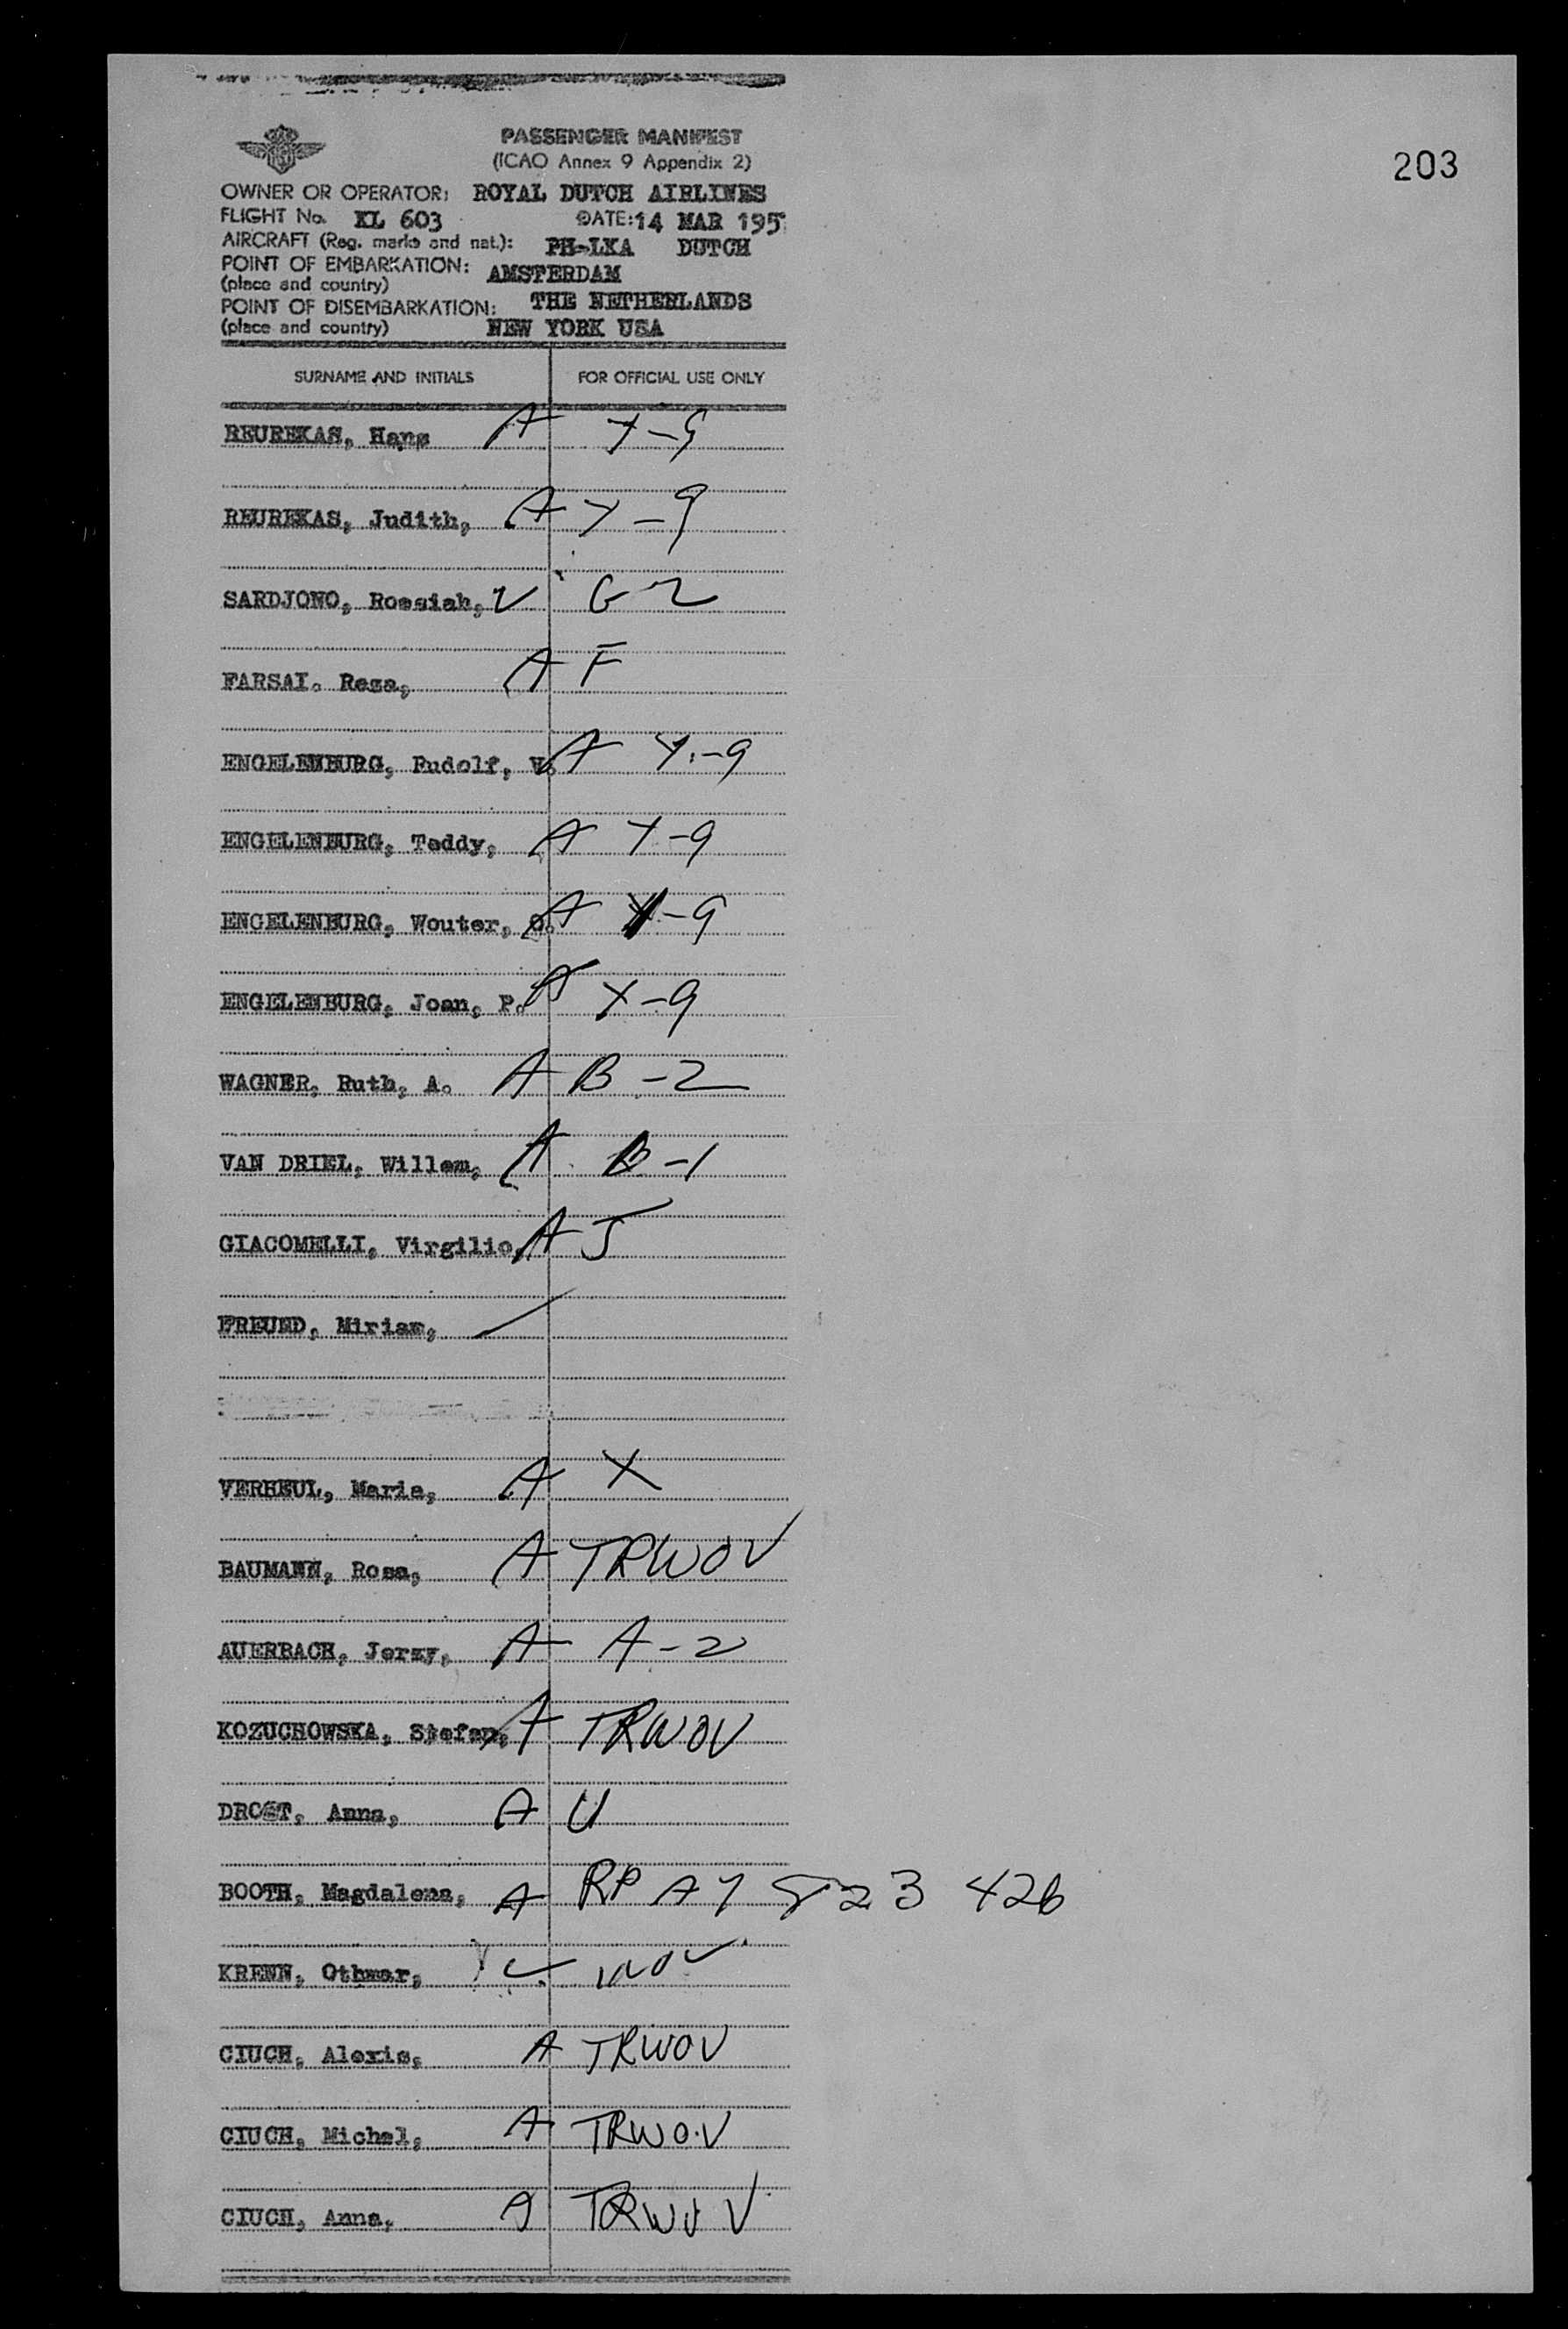 PASSENGER MANIFEST
(ICAO Annex 9 Appendix 2)
203
OWNER OR OPERATOR: ROYAL DUTCH AIRLINES
FLIGHT No. KL 603 DATE: 14 MAR 195
AIRCRAFT (Reg. marks and nat.): PH-LKA DUTCH
POINT OF EMBARKATION: AMSTERDAM
(place and country) THE NETHERLANDS
POINT OF DISEMBARKATION:
(place and country) NEW YORK USA
SURNAME AND INITIALS FOR OFFICIAL USE ONLY
REUREKAS, Hans A Y-9
REUREKAS, Judith, A Y-9
SARDJONO, Roesiah, V G-2
FARSAI. Reza, A F
ENGELENBURG, Rudolf, A Y-9
ENGELENBURG, Teddy, A Y-9
ENGELENBURG, Wouter, A Y-9
ENGELENBURG, Joan, P. A Y-9
WAGNER, Ruth, A. A B-2
VAN DRIEL, Willem, A B-1
GIACOMELLI, Virgilio, A J
FREUND, Miriam,
VERHEUL, Maria, A X
BAUMANN, Rosa, A TRWOV
AUERBACH, Jerzy, A A-2
KOZUCHOWSKA, Stefan, A TRWOV
DROST, Anna, A U
BOOTH, Magdalena, A RP A7 823 426
KRENN, Othmar, WOV
CIUCH, Alexis, A TRWOV
CIUCH, Michal, A TRWO.V
CIUCH, Anna, A TRWOV